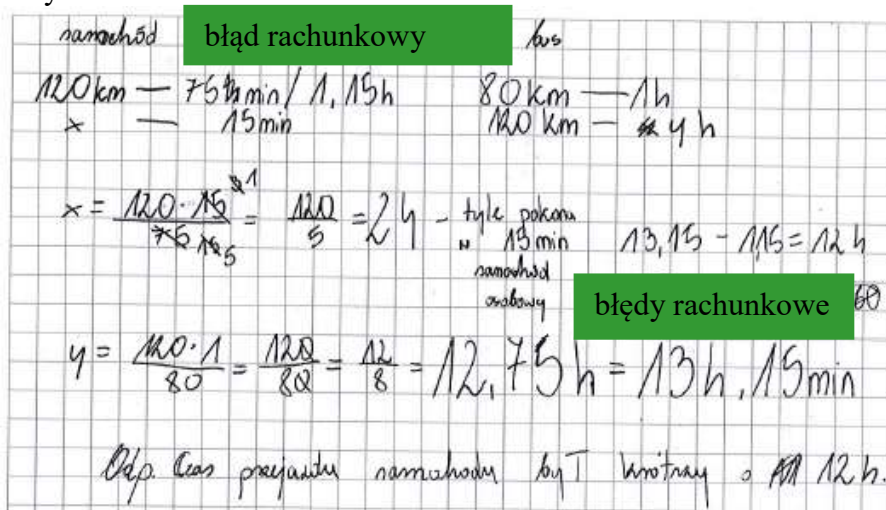 samochód błąd rachunkowy bus
120 km — 75 min / 1,15h 80 km — 1h
x — 15min 120 km — y h
x = 120·15 / 75 = 120 / 5 = 24 - tyle pokona
w 15 min 13,15 - 1,15 = 12 h
samochód
osobowy błędy rachunkowe 60
y = 120·1 / 80 = 120 / 80 = 12 / 8 = 12,75 h = 13h, 15min
Odp. Czas przejazdu samochodu był krótszy o 12 h.